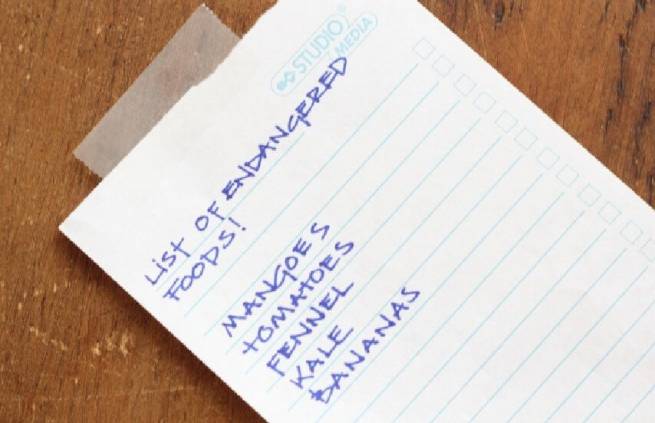 STUDIO
MEDIA
LIST OF ENDANGERED
FOODS!
MANGOES
TOMATOES
FENNEL
KALE
BANANAS